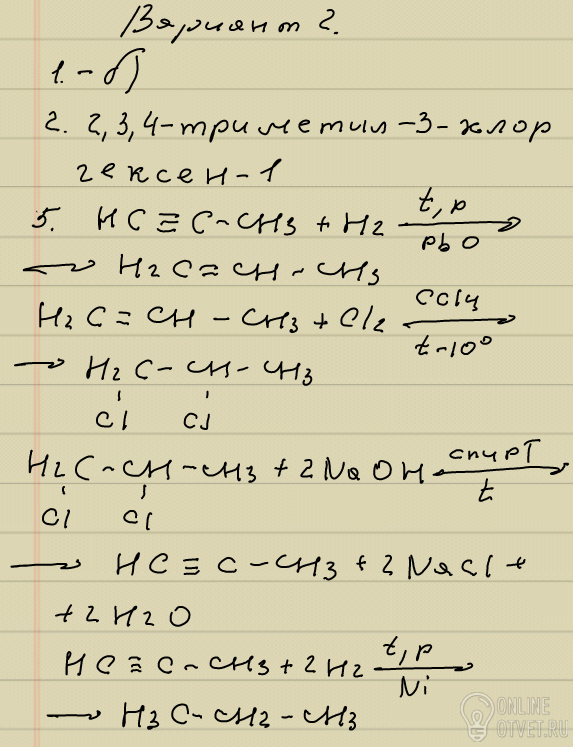 Вариант 2.
1. - б)
2. 2,3,4-триметил-3-хлор
гексен-1
5. HC ≡ C - CH3 + H2 t, p →
PbO
→ H2C = CH - CH3
H2C = CH - CH3 + Cl2 CCl4 →
t~10°
→ H2C - CH - CH3
Cl Cl
H2C - CH - CH3 + 2NaOH спирт →
Cl Cl t
→ HC ≡ C - CH3 + 2NaCl +
+ 2H2O
HC ≡ C - CH3 + 2H2 t, p →
Ni
→ H3C - CH2 - CH3
ONLINE
OTVET.RU